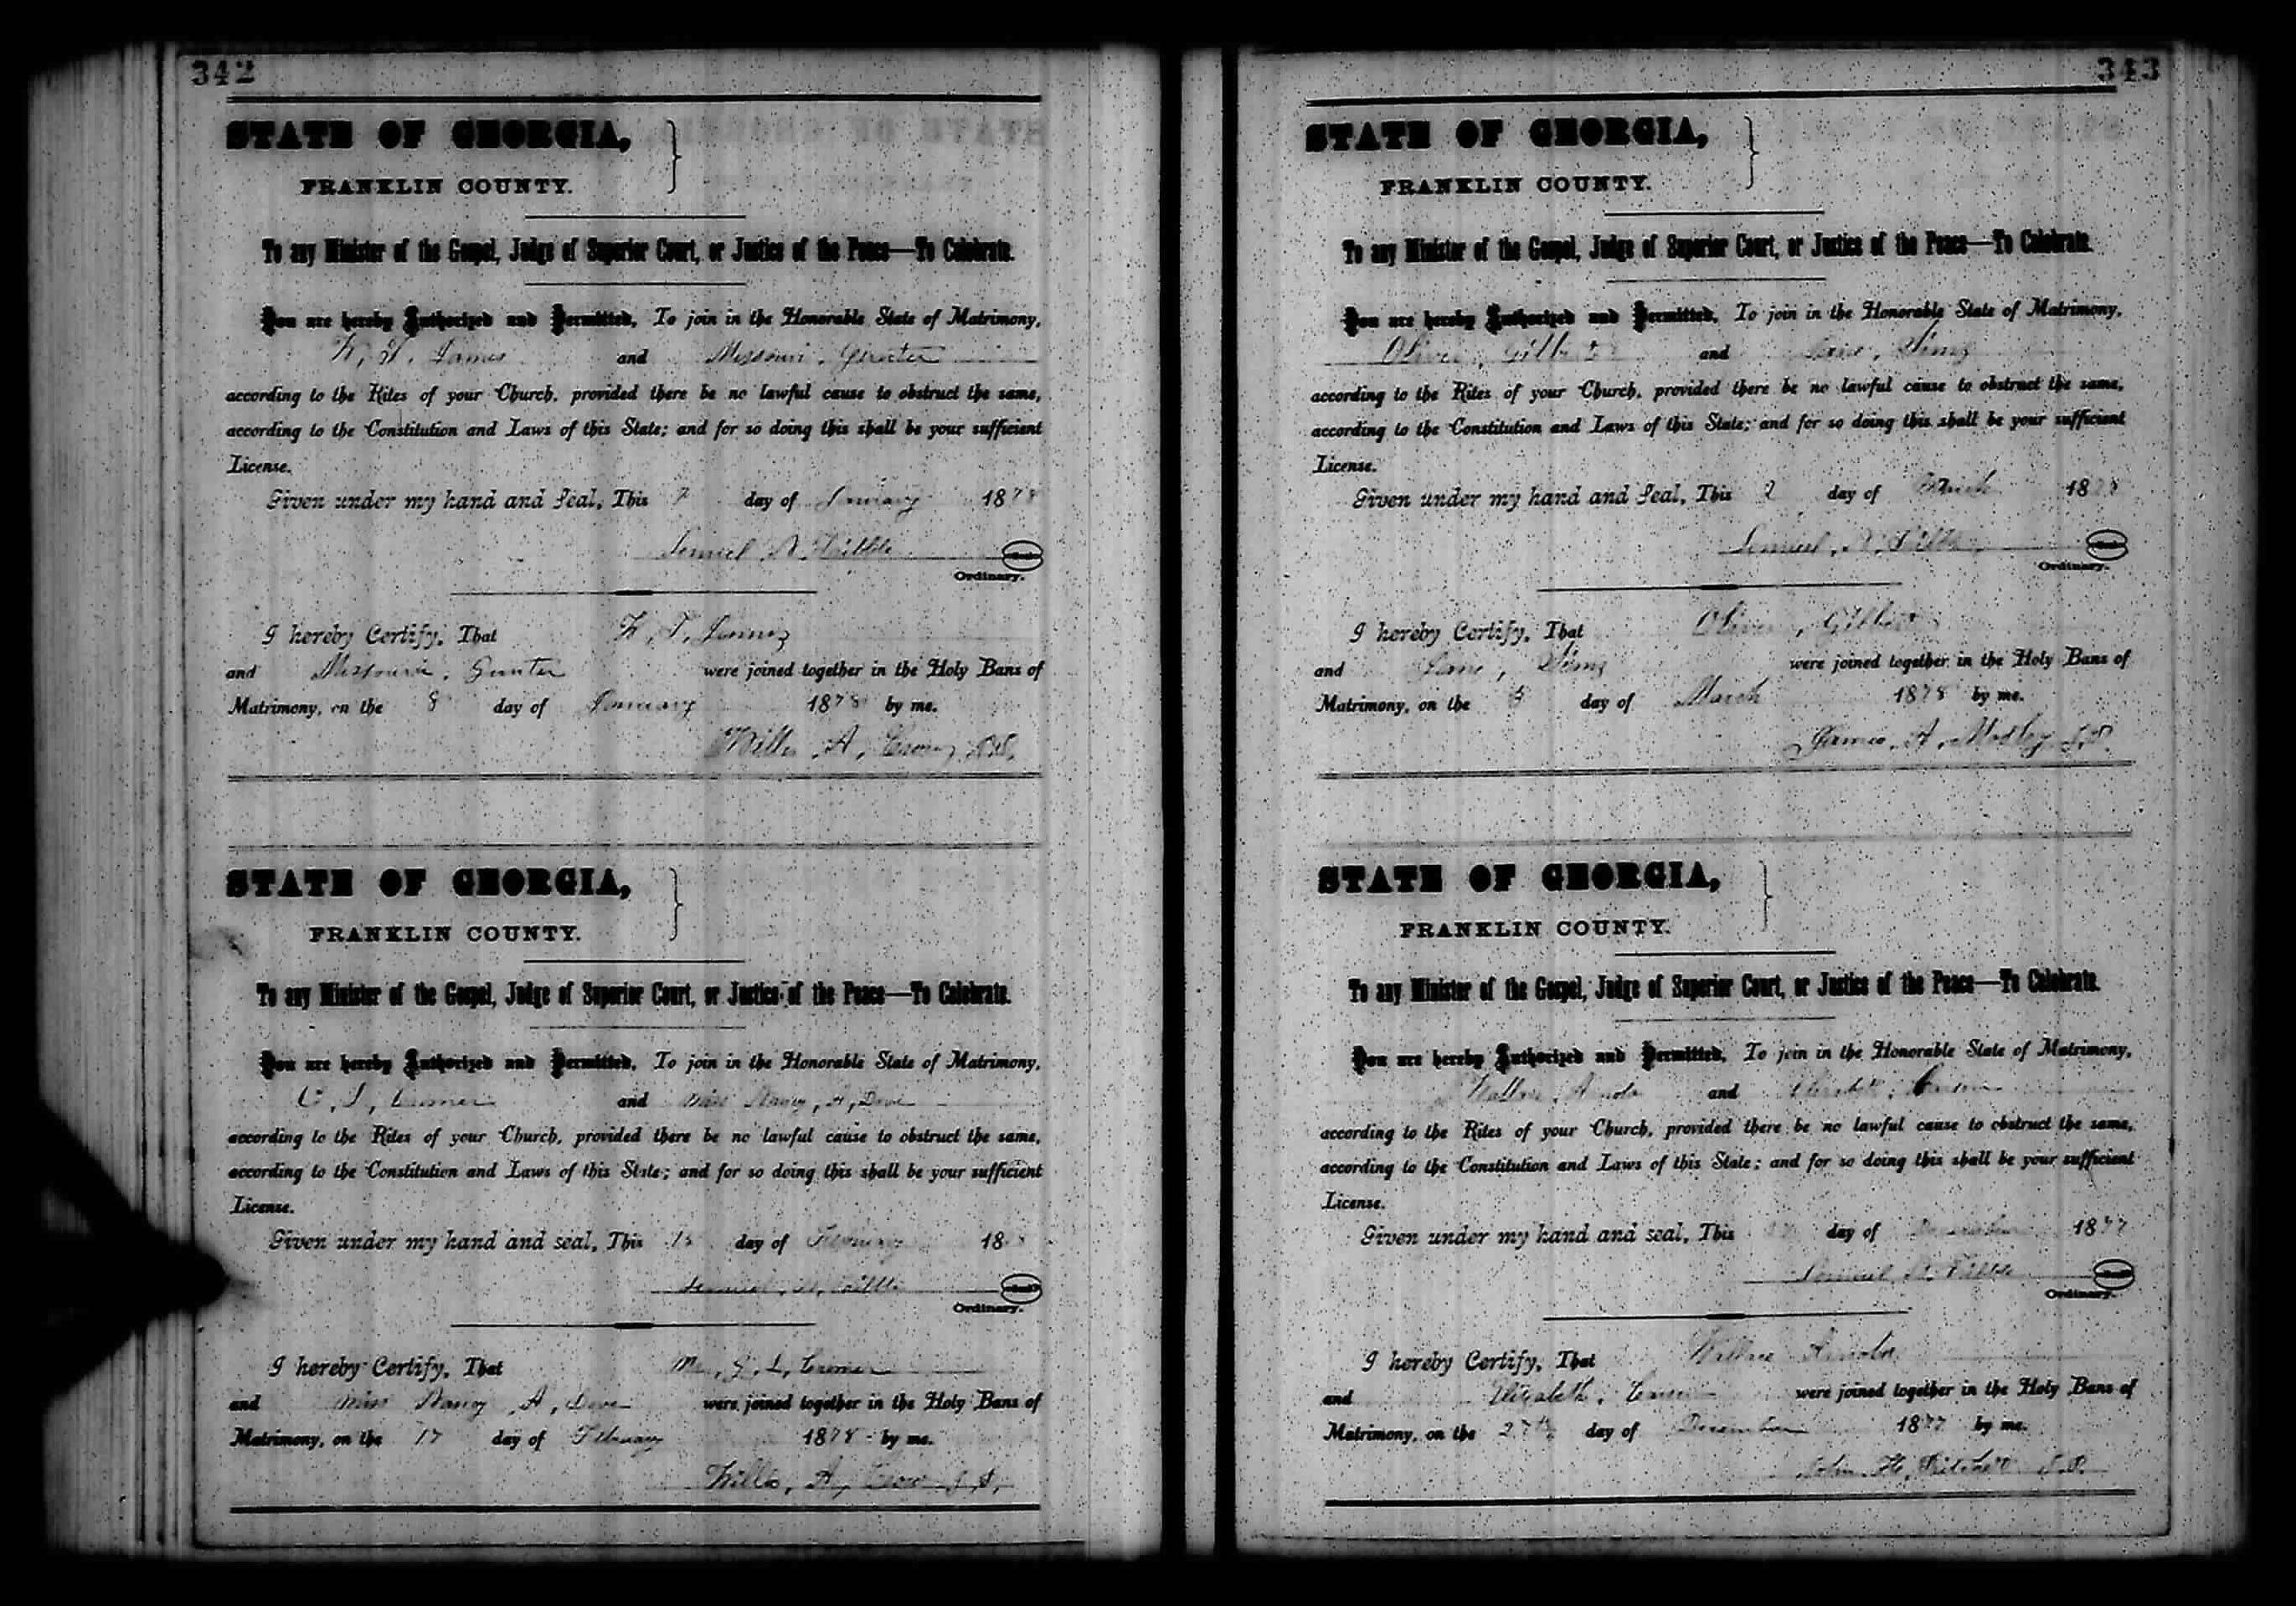 342
STATE OF GEORGIA,
FRANKLIN COUNTY.
To any Minister of the Gospel, Judge of Superior Court, or Justice of the Peace—To Celebrate.
You are hereby Authorized and Permitted, To join in the Honorable State of Matrimony,
and Missouri, Gunter
according to the Rites of your Church, provided there be no lawful cause to obstruct the same,
according to the Constitution and Laws of this State; and for so doing this shall be your sufficient
License.
Given under my hand and Seal, This 7 day of January 1878
Ordinary.
I hereby Certify, That
and Missouri, Gunter were joined together in the Holy Bans of
Matrimony, on the 8 day of January 1878 by me.
STATE OF GEORGIA,
FRANKLIN COUNTY.
To any Minister of the Gospel, Judge of Superior Court, or Justice of the Peace—To Celebrate.
You are hereby Authorized and Permitted, To join in the Honorable State of Matrimony,
and Miss Nancy, A,
according to the Rites of your Church, provided there be no lawful cause to obstruct the same,
according to the Constitution and Laws of this State; and for so doing this shall be your sufficient
License.
Given under my hand and seal, This day of February 18
Ordinary.
I hereby Certify, That
and Miss Nancy, A, were joined together in the Holy Bans of
Matrimony, on the 17 day of February 1878 by me.
343
STATE OF GEORGIA,
FRANKLIN COUNTY.
To any Minister of the Gospel, Judge of Superior Court, or Justice of the Peace—To Celebrate.
You are hereby Authorized and Permitted, To join in the Honorable State of Matrimony,
Oliver, Gilbert and Sims
according to the Rites of your Church, provided there be no lawful cause to obstruct the same,
according to the Constitution and Laws of this State; and for so doing this shall be your sufficient
License.
Given under my hand and Seal, This 2 day of March 1878
Ordinary.
I hereby Certify, That Oliver, Gilbert
and Sims were joined together in the Holy Bans of
Matrimony, on the day of March 1878 by me.
James, A,
STATE OF GEORGIA,
FRANKLIN COUNTY.
To any Minister of the Gospel, Judge of Superior Court, or Justice of the Peace—To Celebrate.
You are hereby Authorized and Permitted, To join in the Honorable State of Matrimony,
Wallace, Arnold and
according to the Rites of your Church, provided there be no lawful cause to obstruct the same,
according to the Constitution and Laws of this State; and for so doing this shall be your sufficient
License.
Given under my hand and seal, This day of December 1877
Ordinary.
I hereby Certify, That Wallace Arnold
and Elizabeth, were joined together in the Holy Bans of
Matrimony, on the 27th day of December 1877 by me.
John, H,